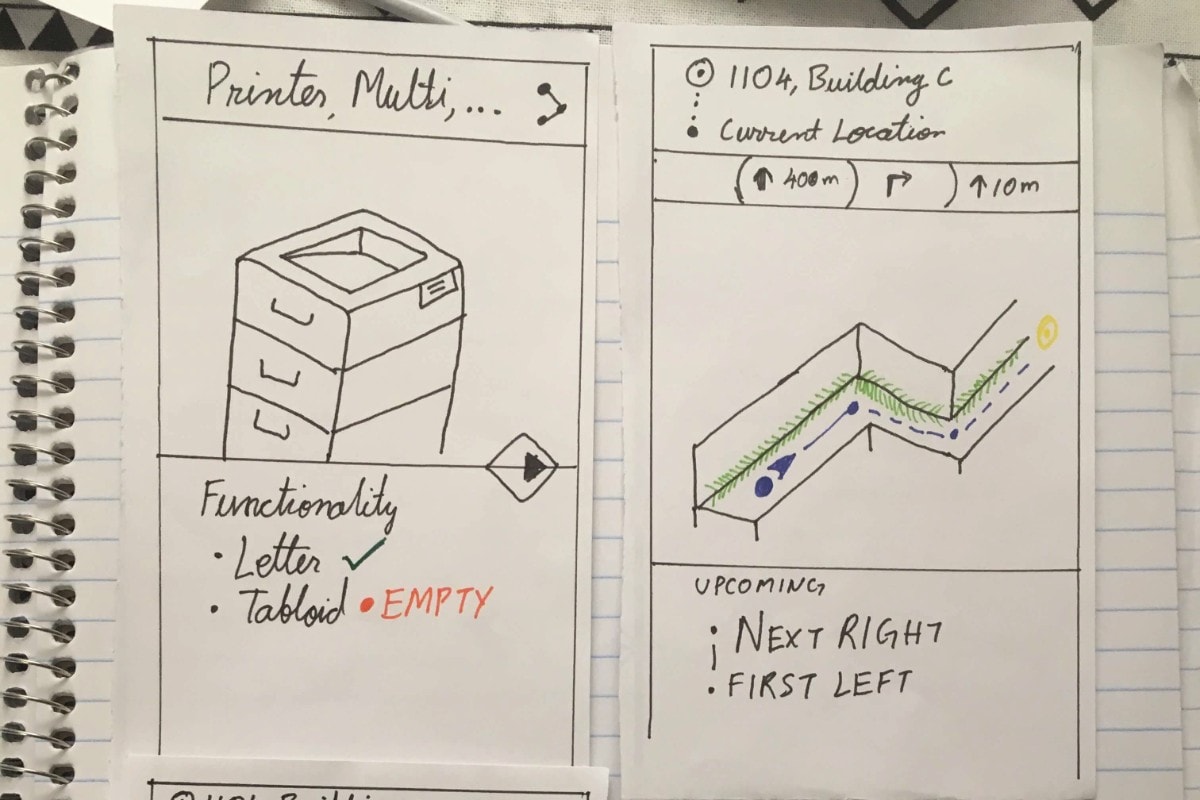 Printer, Multi, ...
Functionality
• Letter ✓
• Tabloid • EMPTY
1104, Building C
Current Location
↑ 400m ↱ ↑ 10m
UPCOMING
NEXT RIGHT
• FIRST LEFT